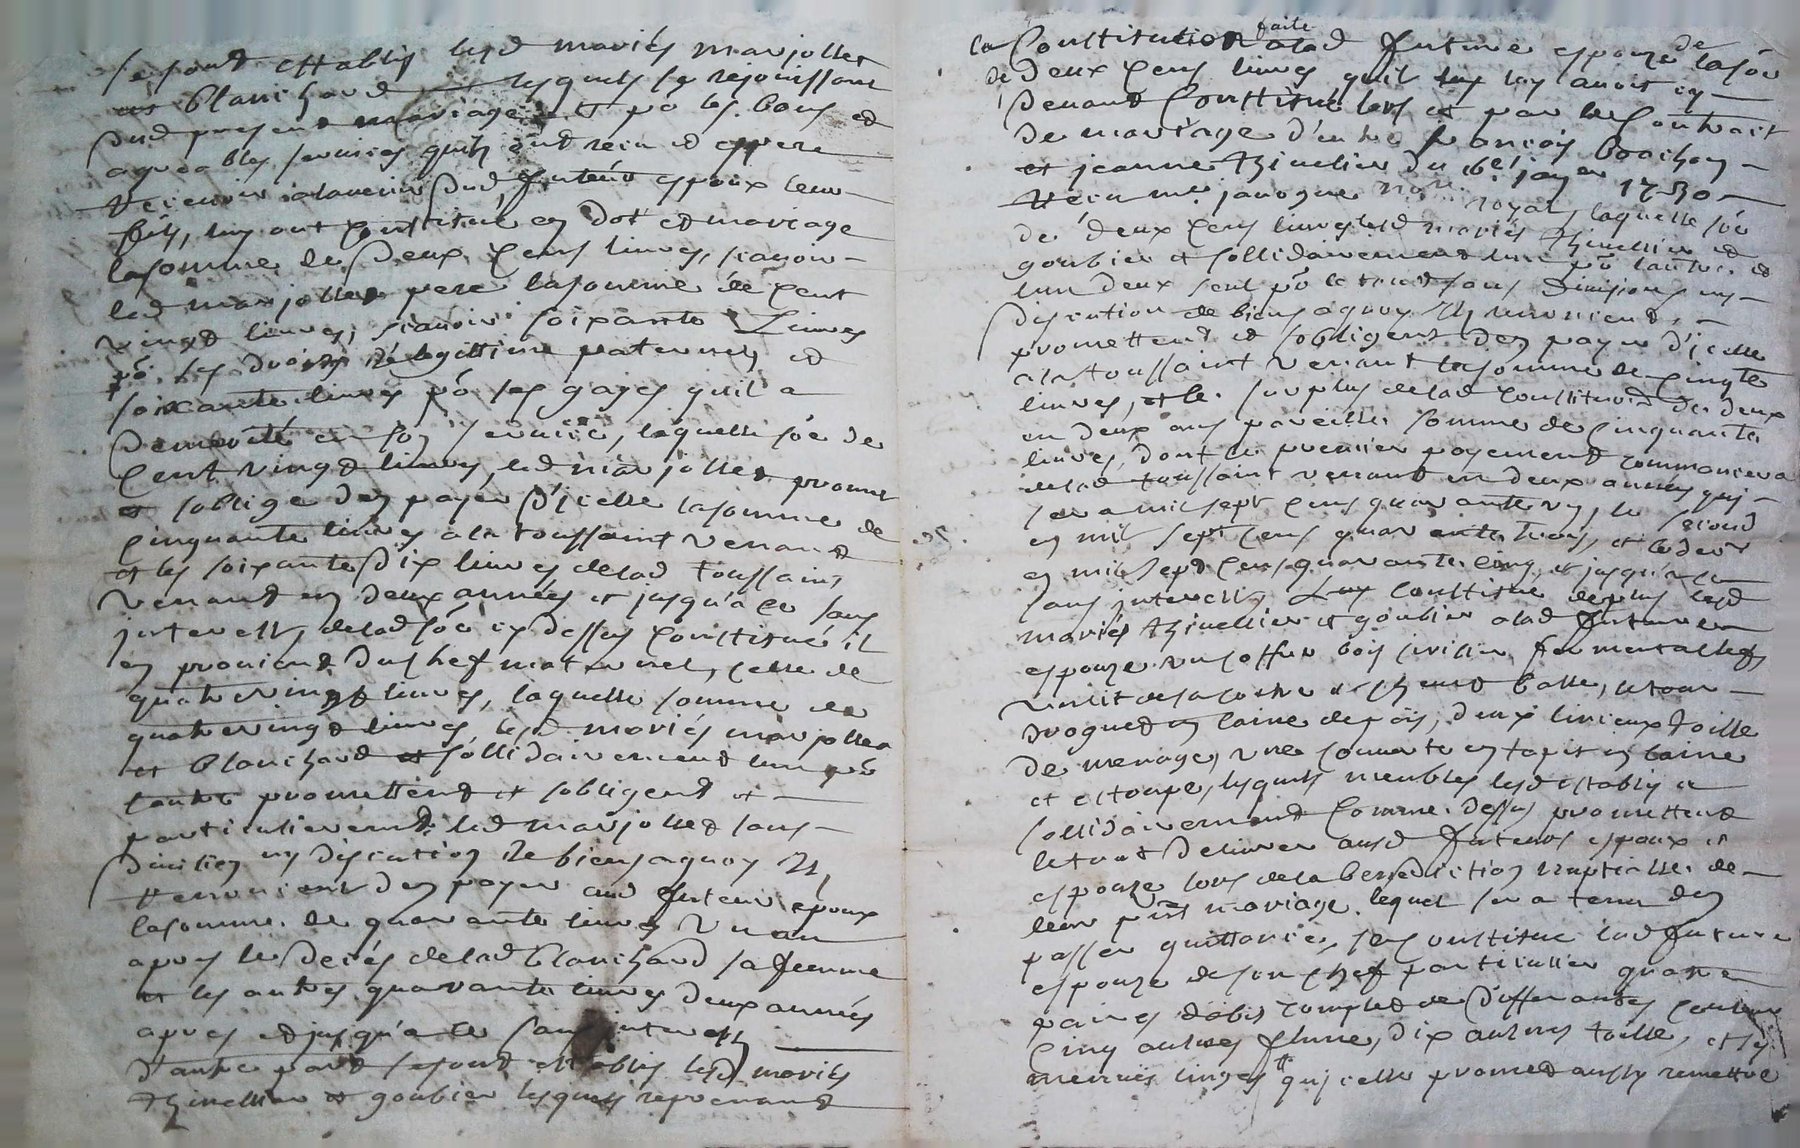 se sont establis lesd mariés marjollet
et blanchard lesquels se rejouissant
dud present mariage et po les bons et
agreables services quils ont receu et espere
recevoir a lavenir dud futeur espoux leur
fils, luy ont constitué en dot et mariage
la somme de deux cens livres, scavoir
led marjollet pere la somme de cent
vingt livres, scavoir soixante livres
po les droits de legittime paternels et
soixante livres po ses gages quil a
demerité en son service, laquelle soe de
cent vingt livres, led marjollet promet
et soblige den payer d'icelle la somme de
cinquante livres a la toussaint venant
et les soixante dix livres de lad toussaint
venant en deux années et jusqu'a ce sans
interests, de lad soe cy dessus constitué il
en provient du chef maternel, celle de
quatre vingt livres, laquelle somme de
quatre vingt livres lesd mariés marjollet
et blanchard et sollidairement lun po
lautre promettent et sobligent et
particulierement led marjollet sans
division ny discution de biens a quoy ils
renoncient den payer aud futeur epoux
la somme de quarante livres un an
apres le decés de lad blanchard sa femme
et les autres quarante livres deux années
apres et jusqu'a ce sans interests
d'autre part se sont establis lesd mariés
thivellier et goubier lesquels reprenant
la constitution faite a lad future espouze de la soe
de deux cens livres quil luy avoit cy
devant constitué lors et par le contrait
de mariage d'entre francois bouchon
et jeanne thivellier du 6e janer 1730
receu me janogne nore royal, laquelle soe
de deux cens livres lesd mariés thivellier et
goubier et sollidairement lun po lautre et
lun deux seul po le tout sans division ny
discution de biens a quoy ils renoncient,
promettent et sobligent den payer d'icelle
a la toussaint venant la somme de cinqte
livres, et le surplus de lad constitution de deux
en deux ans pareille somme de cinquante
livres, dont le premier payement commancera
de lad toussaint venant en deux années qui
sera mil sept cens quarante un, le second
en mil sept cens quarante trois, et le der
en mil sept cens quarante cinq et jusqu'a ce
sans interests, luy constitue de plus lesd
mariés thivellier et goubier a lad future
espouze un coffre bois fermental clefs
un lit de sa coitre et cheut balle, le tour
droguet en laine de pais, deux linceux toille
de menage, une couverte en tapit en laine
et estoupe, lesquels meubles lesd establis et
sollidairement comme dessus promettent
le tout delivrer ausd futeurs espoux et
espouze lors de la benediction nuptialle de
leur pnt mariage, lequel sera tenu den
passer quittance, se constitue lad future
espouze de son chef particullier quatre
paires d'abis complet de differantes couleurs
cinq autres flume, dix autres toille, et ses
menües linges qu'icelle promet aussy remettre